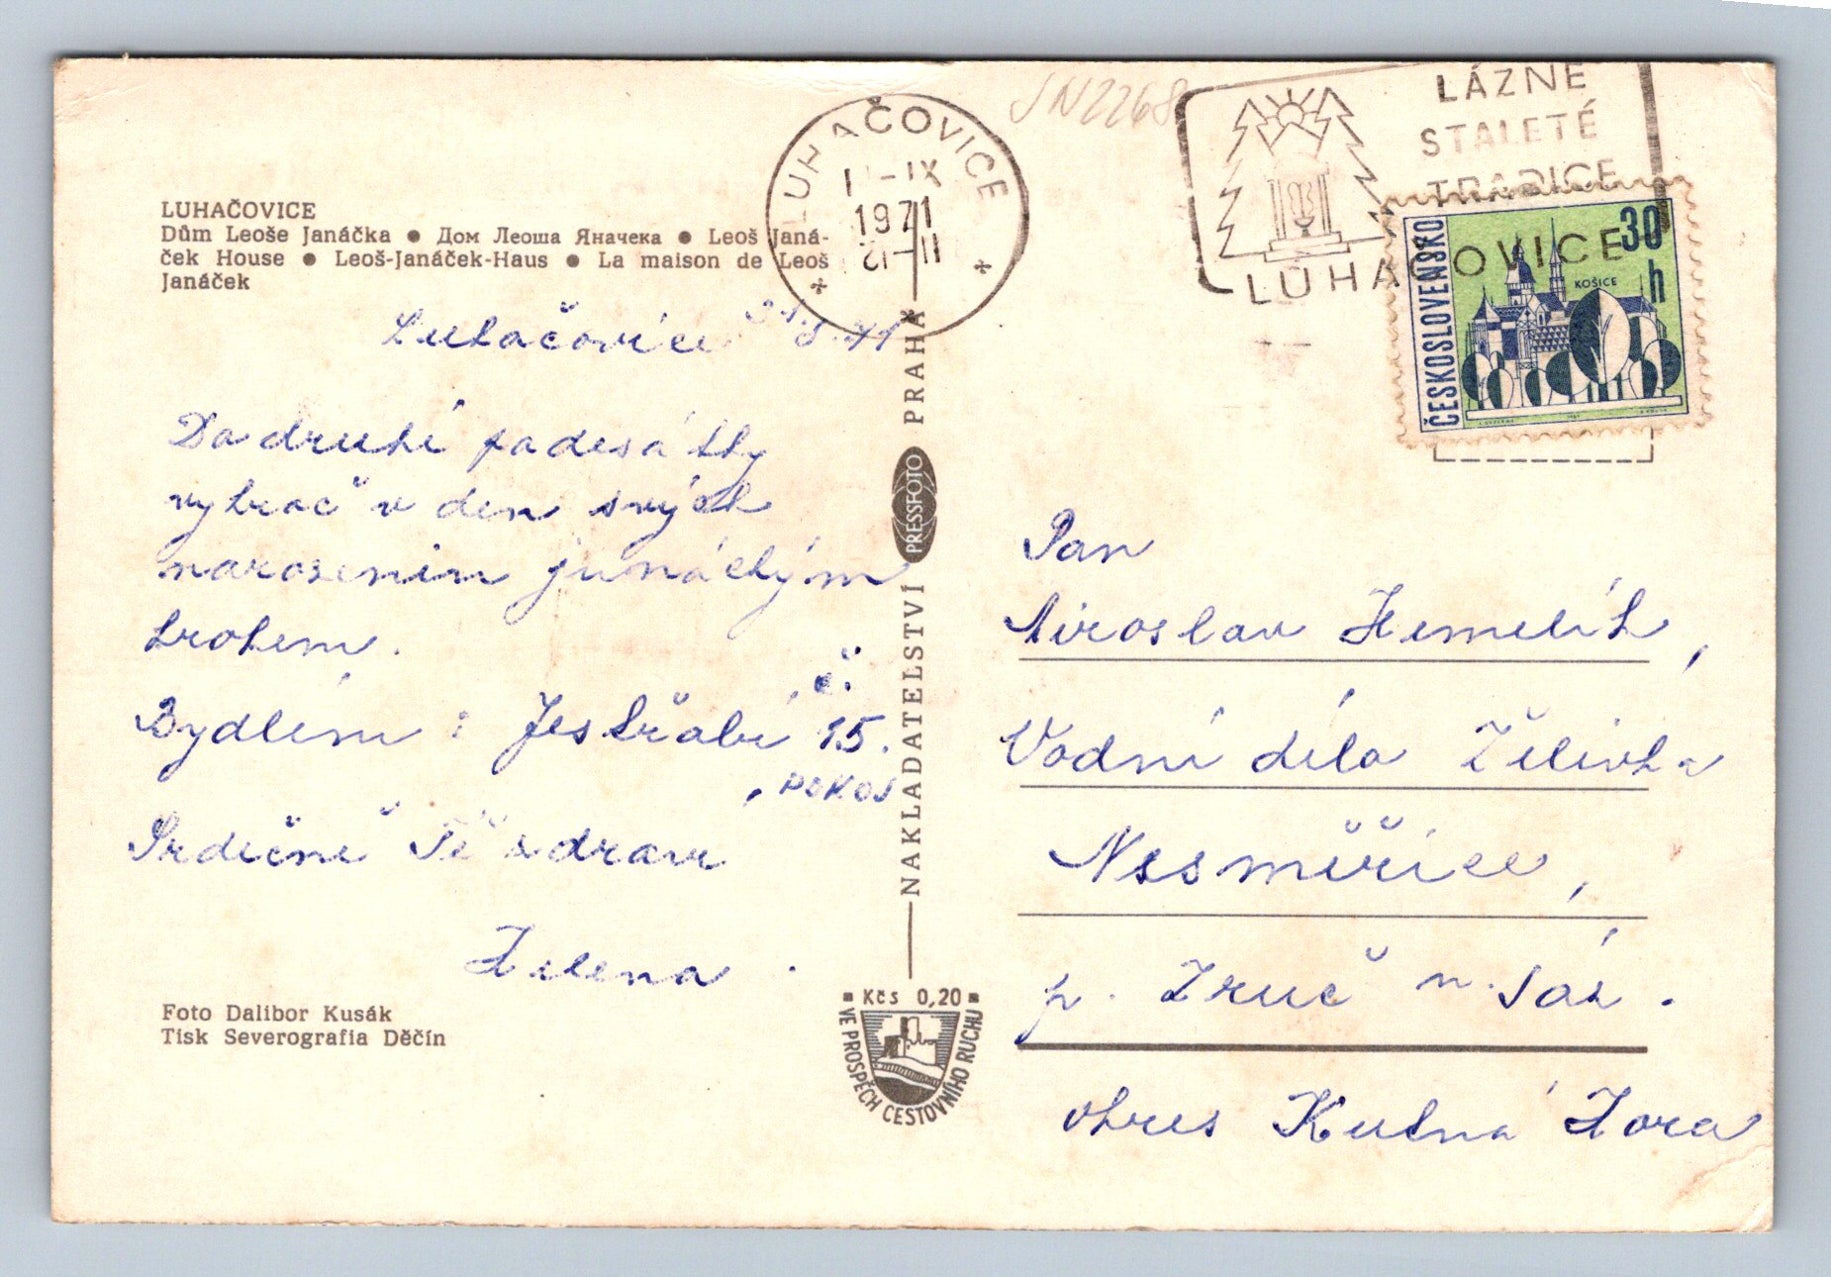 LUHAČOVICE
Dům Leoše Janáčka ● Дом Леоша Яначека ● Leoš Janá-
ček House ● Leoš-Janáček-Haus ● La maison de Leoš
Janáček
Luhačovice 31.8.71
Do druhé padesátky
vykroč v den svých
narozenin junáckým
krokem.
Bydlím: Jestřabí č. 15.
, POKOJ
Srdečně Tě zdraví
Helena.
Foto Dalibor Kusák
Tisk Severografia Děčín
NAKLADATELSTVÍ PRESSFOTO PRAHA
Kčs 0,20
VE PROSPĚCH CESTOVNÍHO RUCHU
JN2268
LUHAČOVICE
-IX
1971
LÁZNĚ
STALETÉ
TRADICE
LUHAČOVICE
ČESKOSLOVENSKO
30
h
KOŠICE
Pan
Miroslav Hemelík,
Vodní dílo Želivka
Nesměřice,
p. Zruč n. Sáz.
okres Kutná Hora